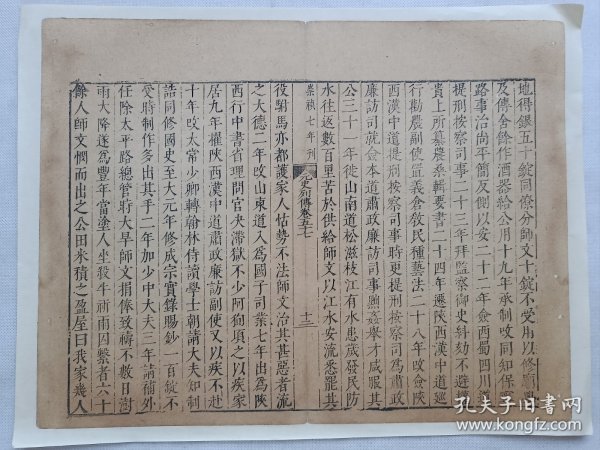 地得銀五十綻同僚分師文十錠不受用以修
及傳舍餘作酒器給公用十九年承制改同知保
路事治尚平簡反側以安二十二年僉西蜀四川
提刑按察司事二十三年拜監察御史糾劾不避
貴上所纂農桑輯要書二十四年遷陝西漢中道巡
行勸農副使置義倉教民種藝法二十八年改僉陝
西漢中道提刑按察司事時更提刑按察司為肅政
廉訪司就僉本道肅政廉訪司事黜姦舉才咸服其
公三十一年徙山南道松滋枝江有水患歲發民防
水往返數百里苦於供給師文以江水安流悉罷其
崇禎七年刊
元史列傳卷五七
十三
役駙馬亦都護家人怙勢不法師文治其甚惡者流
之大德二年改山東道入為國子司業七年出為陝
西行中書省理問官決滯獄不少阿狥頃之以疾家
居九年擢陝西漢中道肅政廉訪副使又以疾不赴
十年改太常少卿轉翰林侍讀學士朝請大夫知制
誥同修國史至大元年修成宗實錄賜鈔一百錠不
受時制作多出其手二年加少中大夫三年請補外
任除太平路總管時大旱師文捐俸致禱不數日澍
雨大降遂為豐年當塗人坐殺牛祈雨囚繫者六十
餘人師文憫而出之公田米積之盈屋曰我家幾人
孔夫子旧书网
kongfz.com